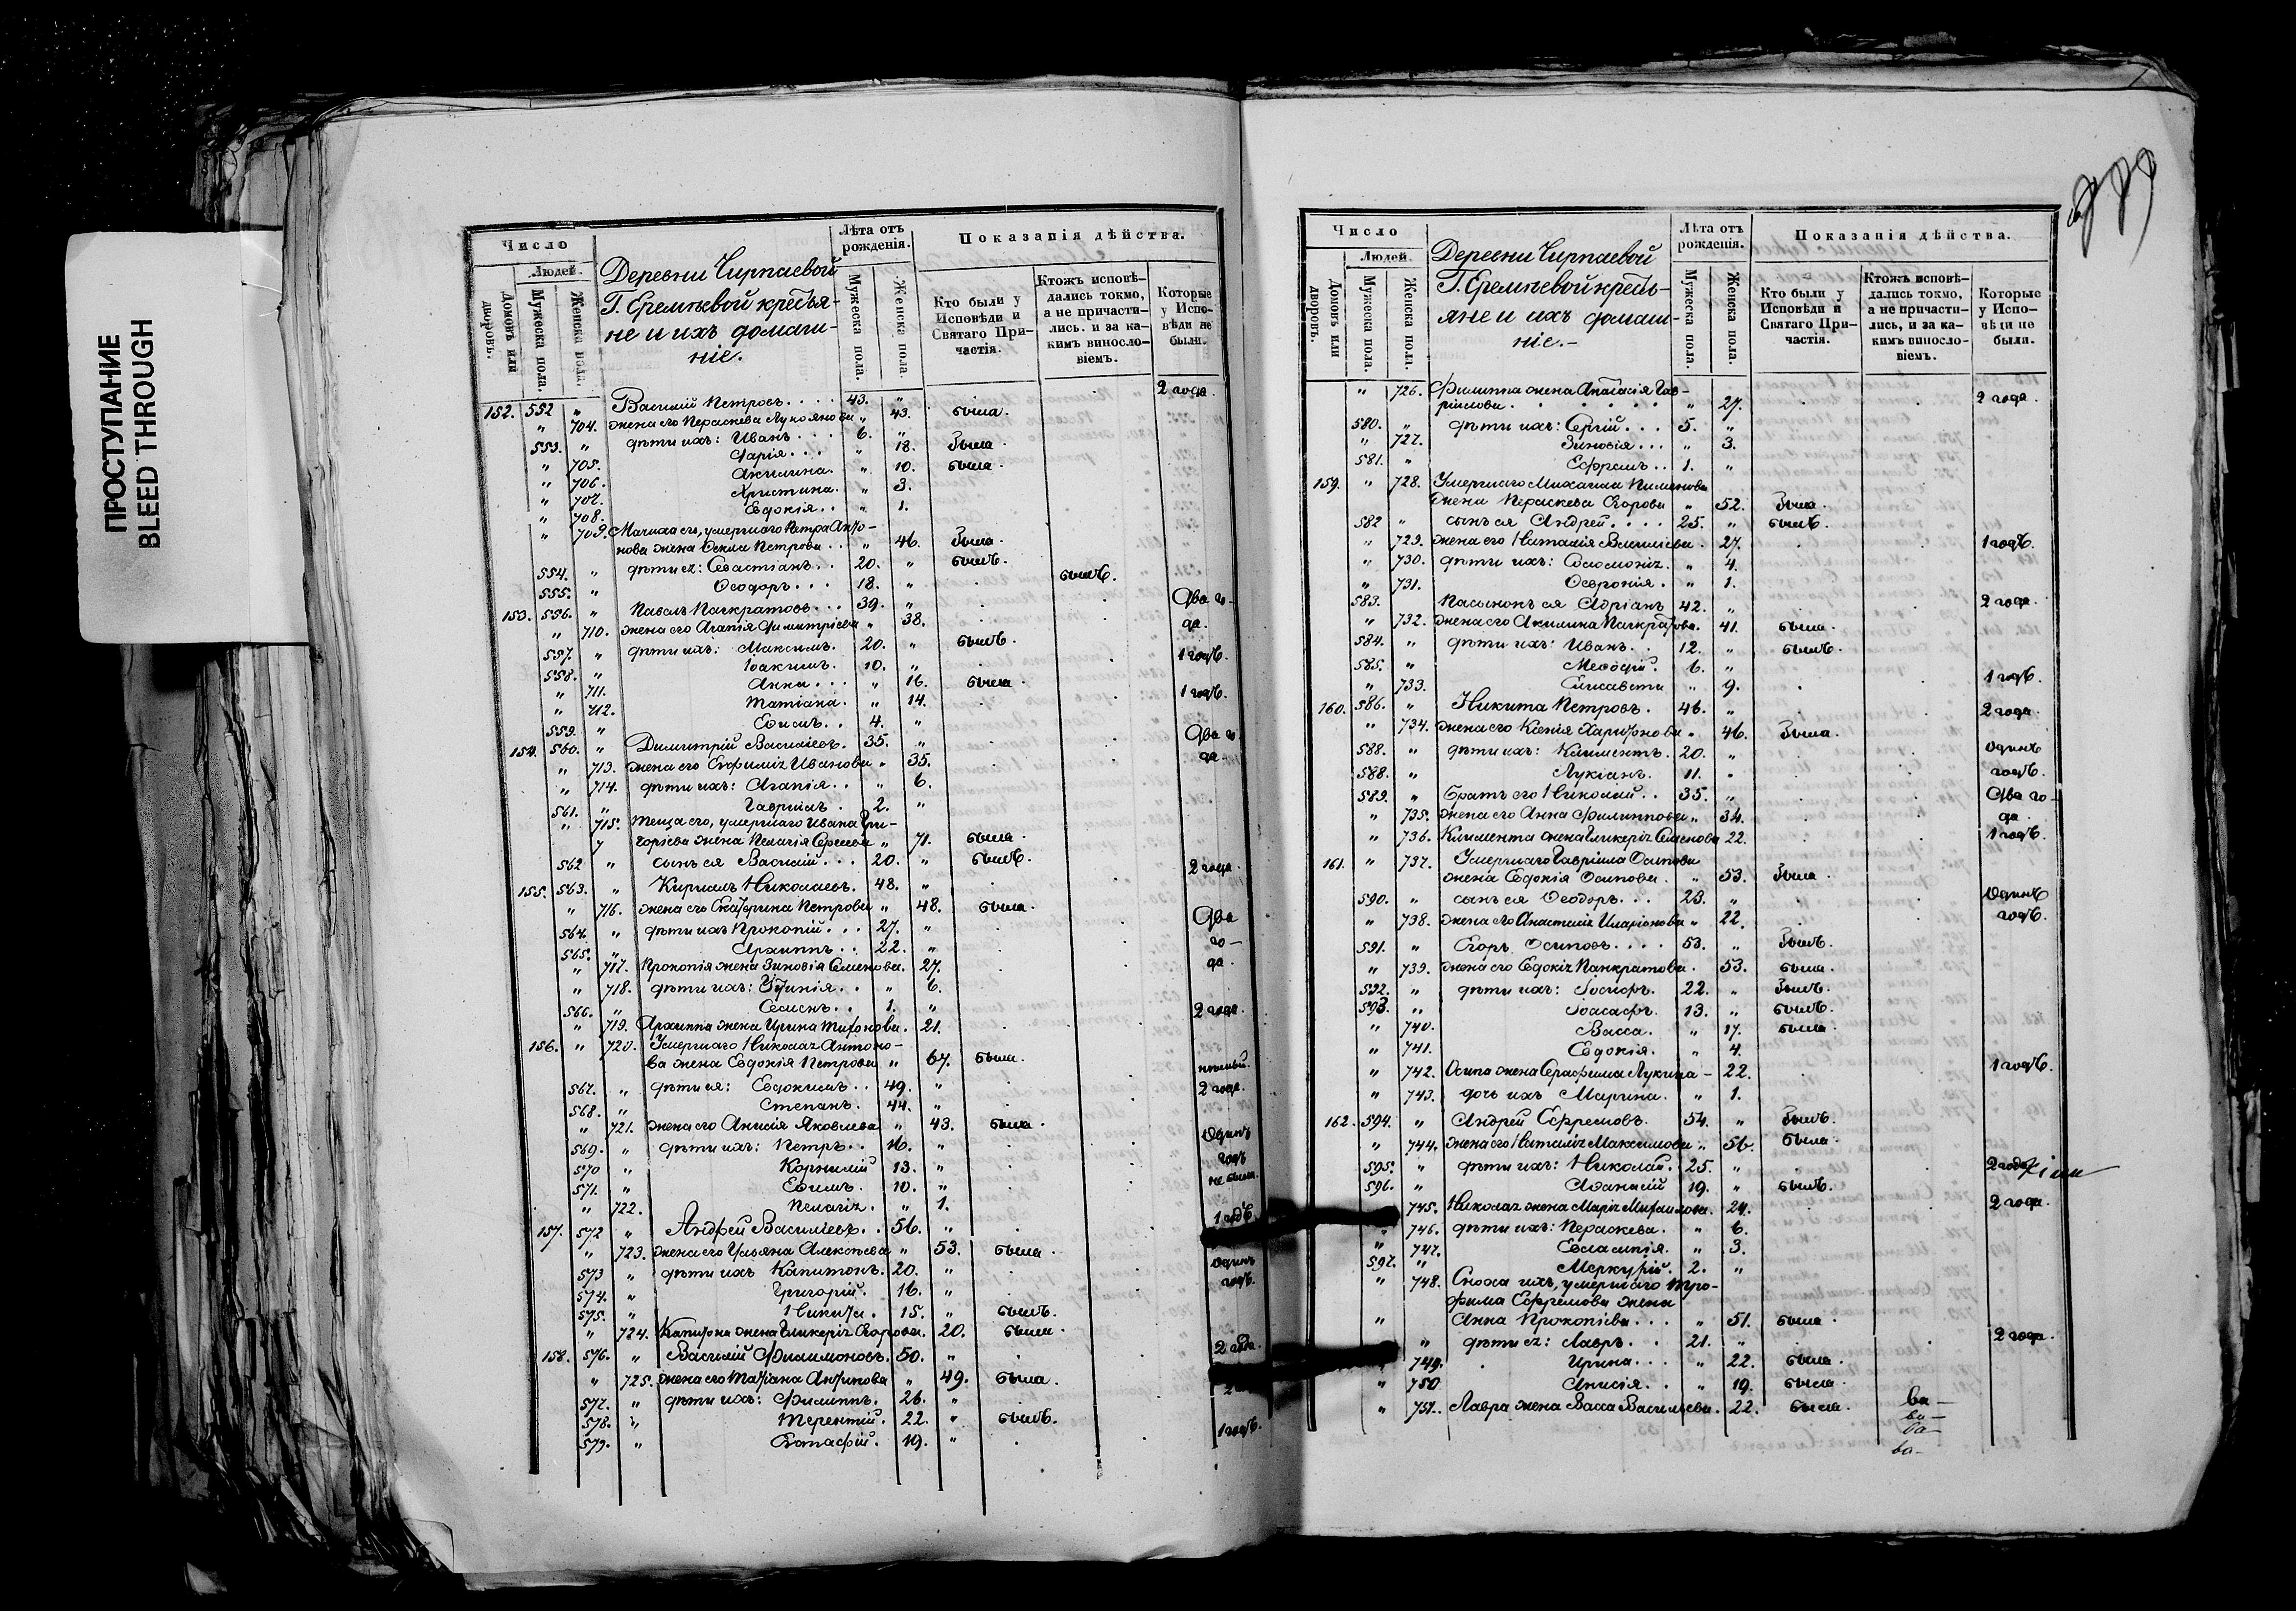 ПРОСТУПАНИЕ
BLEED THROUGH
Число
Людей
Домовъ или дворовъ.
Мужеска пола.
Женска пола.
Деревни Чирпаевой
Г. Еремѣевой крестья-
не и ихъ домаш-
ніе.
Лѣта отъ рожденія.
Мужеска пола.
Женска пола.
Показанія дѣйства.
Кто были у Исповѣди и Святаго При-частія.
Ктожъ исповѣ-дались токмо, а не причасти-лись. и за ка-кимъ винословіемъ.
Которые у Испо-вѣди не были.
152. 552 " Василій Петровъ 43. " 2 года.
" 704. жена его Параскева Лукоянова " 43. была.
553. " дѣти ихъ: Иванъ 6. "
" 705. Дарія " 18. была
" 706. Акилина. " 10. была.
" 707. Христина. " 3.
" 708. Евдокія " 1.
" 709. Мачиха его, умершаго Петра Анто-
нова жена Ѳекла Петрова " 46. была.
554. " дѣти ея: Севастіанъ 20. " былъ.
555. " Ѳеодоръ 18. " былъ.
153. 556. " Павелъ Панкратовъ 39. " Два го-
" 710. жена его Агапія Димитріева " 38. да.
557. " дѣти ихъ: Максимъ. 20. " былъ.
558. " Іоакимъ. 10. " 1 годъ.
" 711. Анна " 16. была.
" 712. Татіана. " 14. 1 годъ.
559. " Ефимъ. 4. "
154. 560. " Димитрій Василіевъ. 35. " Два го-
" 713. жена его Евфимія Иванова " 35. да.
" 714. дѣти ихъ: Агапія " 6.
561. " Гавріилъ. 2. "
" 715. Теща его, умершаго Ивана Гри-
горіева жена Пелагія Сергѣева " 71. была.
562 " сынъ ея Василій 20. " былъ.
155. 563. " Кириллъ Николаевъ. 48. " 2 года.
" 716. жена его Екатерина Петрова " 48. была.
564. " дѣти ихъ Прокопій 27. " Два
565. " Архиппъ 22. " го-
" 717. Прокопія жена Зиновія Семенова. 27. да.
" 718. дѣти ихъ: " 6.
566. " 1. "
" 719. Архиппа жена Ирина Тихонова. 21. 2 года.
156. " 720. Умершаго Николая Антоно-
ва жена Евдокія Петрова " 67. была.
567. " дѣти ея: Евдокимъ 49. " нѣмый.
568. " Степанъ. 44. " 2 года.
" 721. жена его Анисія Яковлева " 43. была.
569. " дѣти ихъ: Петръ 16. " Одинъ
570 " Корнилій 13. " годъ
571. " Ефимъ. 10. " не были.
" 722. Пелагія. " 1.
157. 572 " Андрей Василіевъ 56. " 1 годъ
" 723. жена его Ульяна Алексѣева " 53. была.
573 " дѣти ихъ Капитонъ. 20. " одинъ
574. " Григорій. 16. " годъ.
575. " Никита. 15. " былъ.
" 724. Капитона жена Гликерія Егорова. 20. была.
158. 576. " Василій Филимоновъ. 50. " 2 года.
" 725. жена его Татіана Антипова " 49. была.
577. " дѣти ихъ: Филиппъ. 26. "
578. " Терентій. 22. " былъ.
579. " Евстафій. 19. " 1 годъ.
Число
Людей
Домовъ или дворовъ.
Мужеска пола.
Женска пола.
Деревни Чирпаевой
Г. Еремѣевой кресть-
яне и ихъ домаш-
ніе.
Лѣта отъ рожденія.
Мужеска пола.
Женска пола.
Показанія дѣйства.
Кто были у Исповѣди и Святаго При-частія.
Ктожъ исповѣ-дались токмо, а не причасти-лись, и за ка-кимъ винословіемъ.
Которые у Испо-вѣди не были.
" 726. Филиппа жена Анастасія Гав-
ріилова " 27. 2 года.
580. " дѣти ихъ: Сергій 5. "
" 727. Зиновія " 3.
581. " Ефремъ 1. "
159. " 728. Умершаго Михаила Пименова
жена Параскева Егорова " 52. была.
582 " сынъ ея Андрей 25. " былъ.
" 729. жена его Наталія Василіева 27. 1 годъ.
" 730. дѣти ихъ: Соломонія. " 4.
" 731. Ѳевронія. " 1.
583. Пасынокъ ея Адріанъ 42. " 2 года.
" 732. жена его Акилина Панкратова. 41. была.
584. " дѣти ихъ: Иванъ 12. " былъ.
585. " Меѳодій. 6. "
" 733. Елисавета " 9. 1 годъ.
160. 586. " Никита Петровъ. 46. " 2 года.
" 734. жена его Ксенія Харитонова " 46. была.
588. " дѣти ихъ: Климентъ. 20. " одинъ
588. " Лукіанъ. 11. " годъ.
589. " братъ его Николай 35. " Два го-
" 735. жена его Анна Филиппова " 34. да.
" 736. Климента жена Гликерія Семенова 22. 1 годъ.
161. " 737. Умершаго Гавріила Осипова
жена Евдокія Осипова. " 53. была.
590. " сынъ ея Ѳеодоръ 23. " Одинъ
" 738. жена его Анастасія Иларіонова " 22. годъ.
591. " Егоръ Осиповъ 53. " былъ.
" 739. жена его Евдокія Панкратова. 53. была.
592. " дѣти ихъ: Іосифъ. 22. " былъ.
593. " Іоасафъ. 13. " былъ.
" 740. Васса. " 17. была.
" 741. Евдокія. " 4.
" 742. Осипа жена Серафима Лукина - 22. 1 годъ.
" 743. дочь ихъ Марина. " 1.
162. 594. " Андрей Ефремовъ. 54. " былъ.
" 744. жена его Наталія Максимова " 56. была.
595. " дѣти ихъ: Николай. 25. " 2 года
596. " Аѳанасій 19. " былъ.
745. Николая жена Марія Михаилова. 24. 2 года.
" 746. дѣти ихъ: Параскева. " 6.
" 747. Евлампія. " 3.
597. " Меркурій. 2. "
" 748. Сноха ихъ, умершаго Тро-
фима Ефремова жена
" Анна Прокопіева " 51. была.
" дѣти ея: Лавръ 21. " 2 года.
749. Ирина " 22. была.
" 750 Анисія " 19. была.
" 751. Лавра жена Васса Василіева. 22. была.
ва-
ва-
ва-
ва-